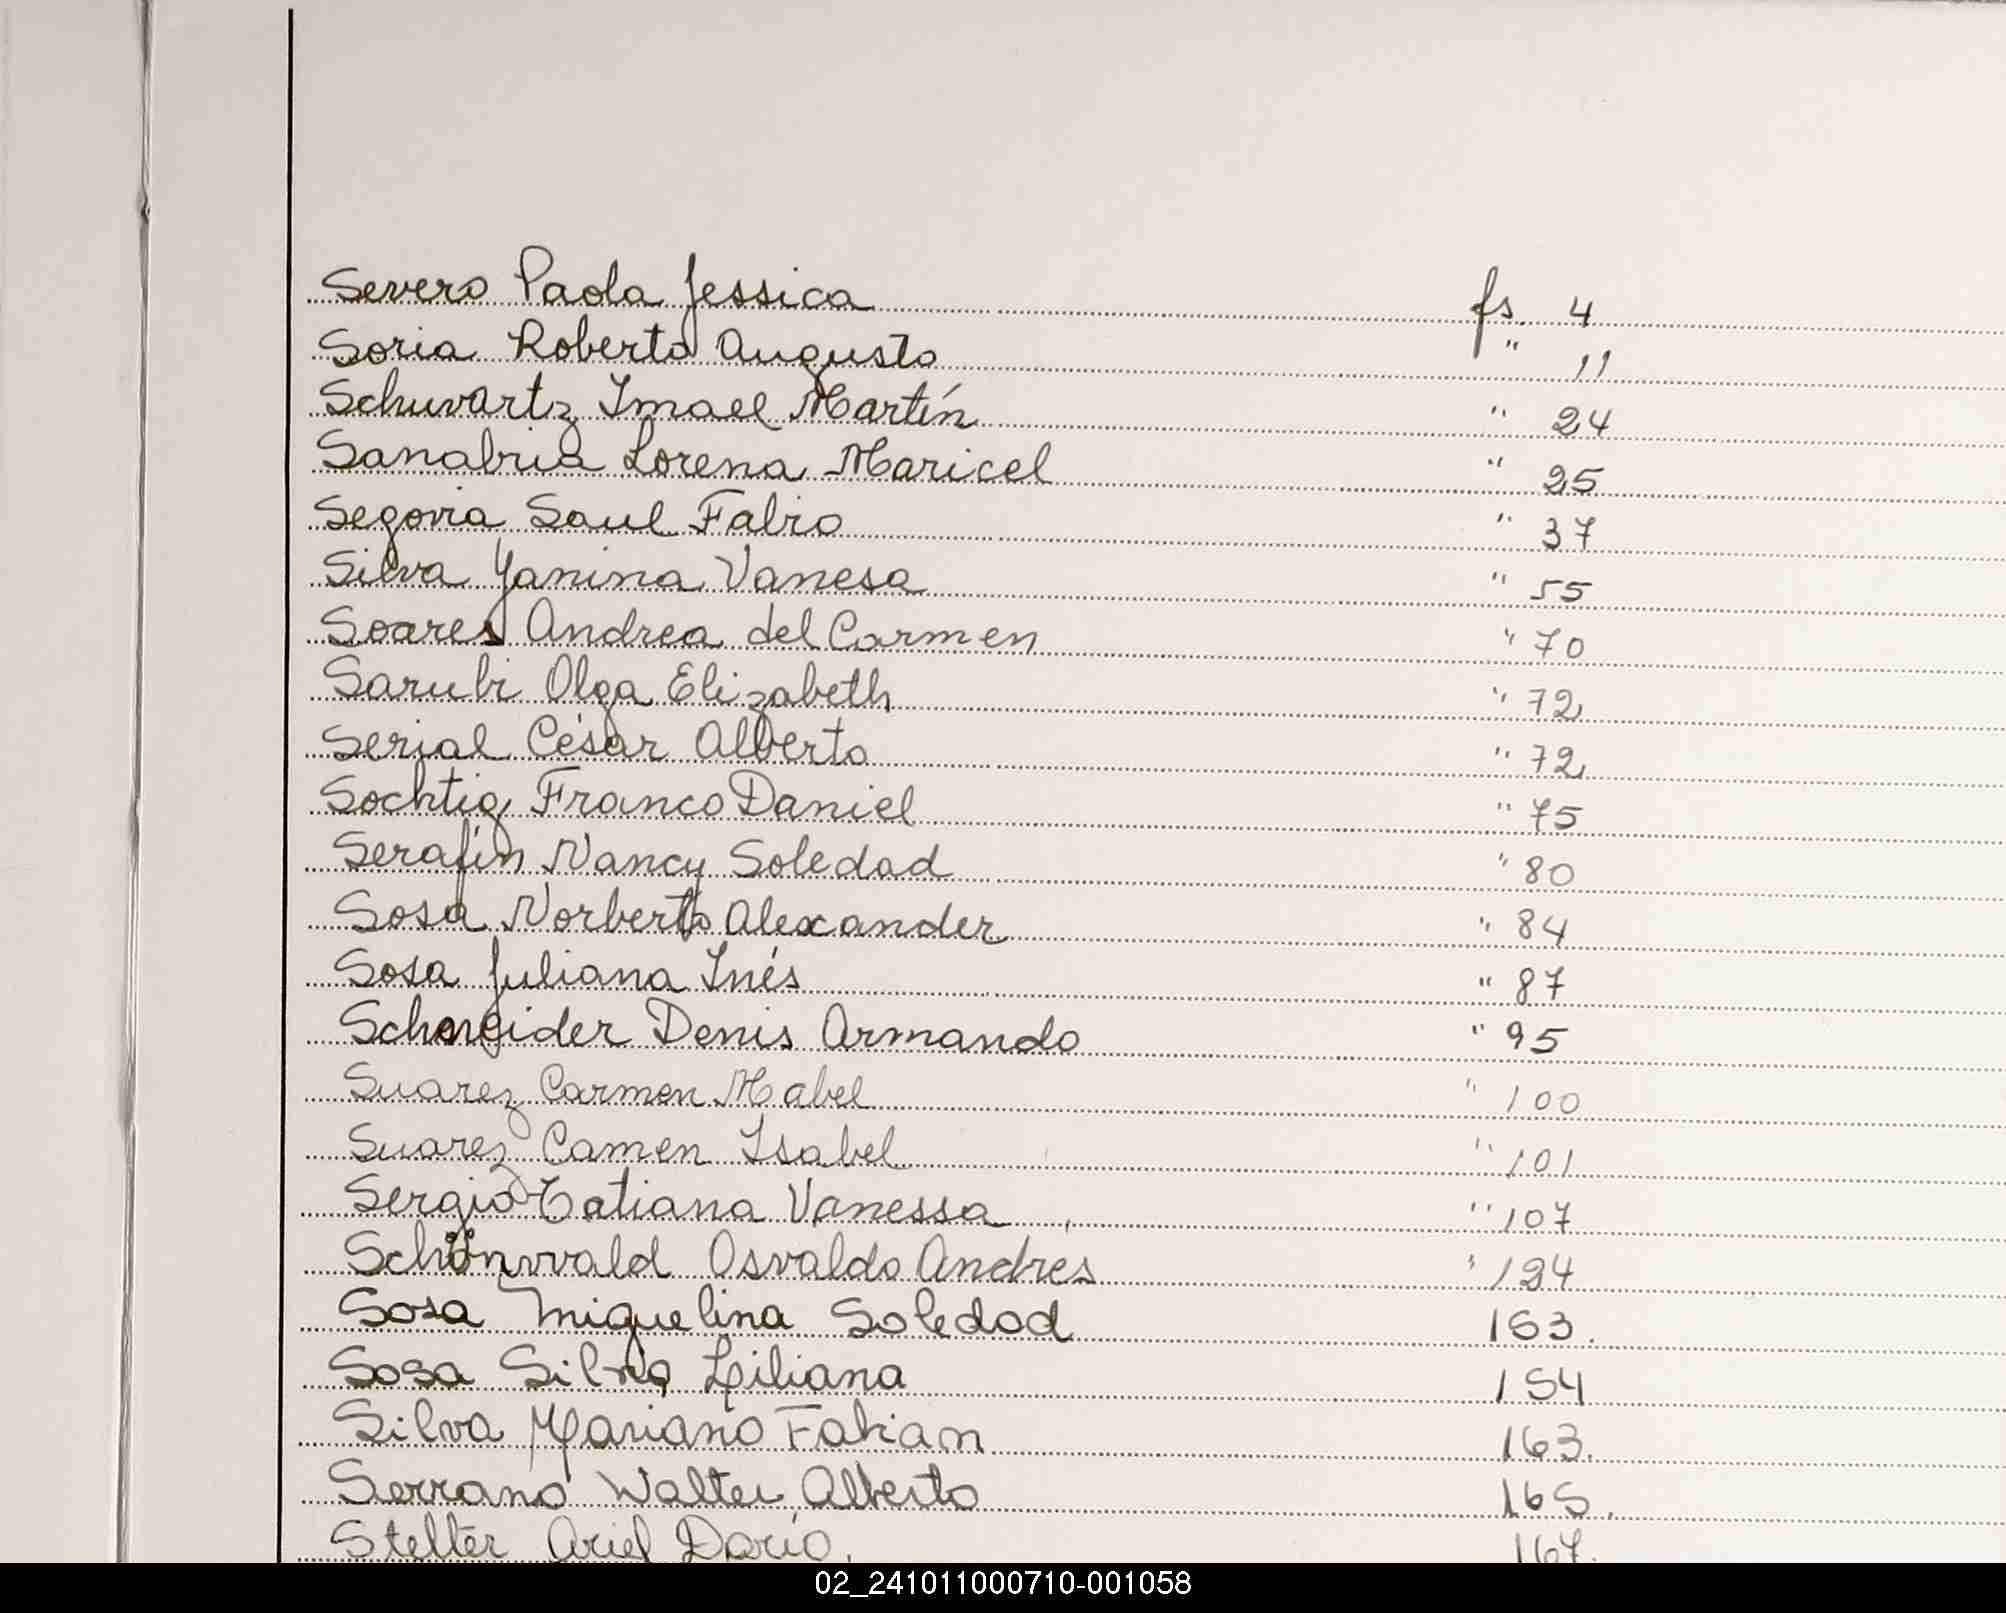 Severo Paola Jessica fs. 4
Soria Roberto Augusto " 11
Schuvartz Imael Martín " 24
Sanabria Lorena Maricel " 25
Segovia Saul Fabio " 37
Silva Yanina Vanesa " 55
Soares Andrea del Carmen " 70
Sarubi Olga Elizabeth " 72
Serial César Alberto " 72
Sochtig Franco Daniel " 75
Serafín Nancy Soledad " 80
Sosa Norberto Alexander " 84
Sosa Juliana Inés " 87
Schneider Denis Armando " 95
Suarez Carmen Mabel " 100
Suarez Camen Isabel " 101
Sergio Tatiana Vanessa " 107
Schönvvald Osvaldo Andrés " 124
Sosa Miguelina Soledad 153.
Sosa Silvia Liliana 154
Silva Mariano Fabian 163.
Serrano Walter Alberto 165.
Stelter Ariel Darío. 167.
02_241011000710-001058